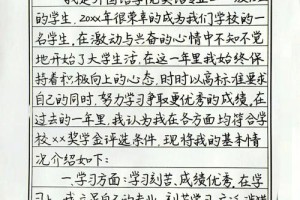 我是外国语学院英语专业
的学生。20xx年很荣幸的成为我们学校的一
名学生，在激动与兴奋的心情中不知不觉
地开始了大学生活，在这一年里我始终保
持着积极向上的心态，时时以高标准要求
自己的同时，努力学习争取更优秀的成绩，在
过去的一年里，我认为我在各方面均符合学
校xx奖学金评选条件。现将我的基本情
况介绍如下：
一.学习方面：学习刻苦，成绩优秀，在学
习上，我立足自己的专业，刻苦学习